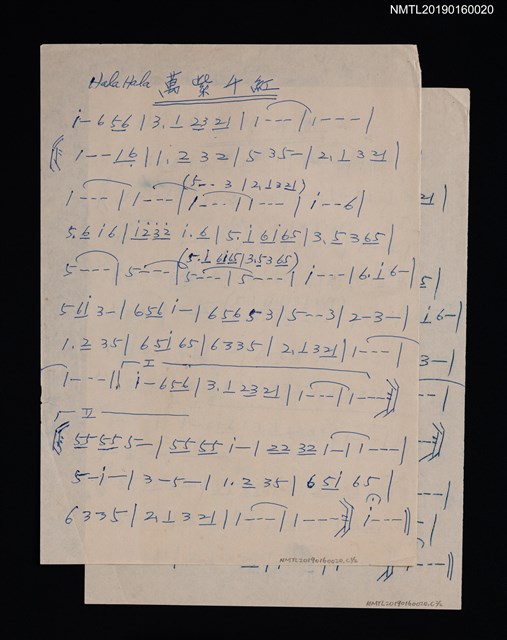 NMTL20190160020
Hala Hala 萬紫千紅
i - 6 56 | 3. 1 23 21 | 1 - - - | 1 - - - |
1 - - 16 | 1. 2 3 2 | 5 35 - | 2. 1 3 21 |
(5 - - 3 | 2. 1 3 21)
1 - - - | 1 - - - | 1 - - - | 1 - - - | i - - 6 |
5. 6 i 6 | i2 32 i. 6 | 5. i 6 i 65 | 3. 5 3 65 |
(5. i 6i 65 | 3. 5 3 65)
5 - - - | 5 - - - | 5 - - - | 5 - - - | i - - - | 6. i 6 - |
5 6i 3 - | 6 56 i - | 6 56 5 3 | 5 - - 3 | 2 - 3 - |
1. 2 3 5 | 6 5i 65 | 6 3 3 5 | 2. 1 3 21 | 1 - - - |
I
1 - - - | i - 6 56 | 3. 1 23 21 | 1 - - - | 1 - - -
II
55 55 5 - | 55 55 i - | 22 32 1 - | 1 - - - |
5 - i - | 3 - 5 - | 1. 2 35 | 6 5i 65 |
6 3 3 5 | 2. 1 3 21 | 1 - - - | 1 - - - i - - -
NMTL20190160020.C
NMTL20190160020.C